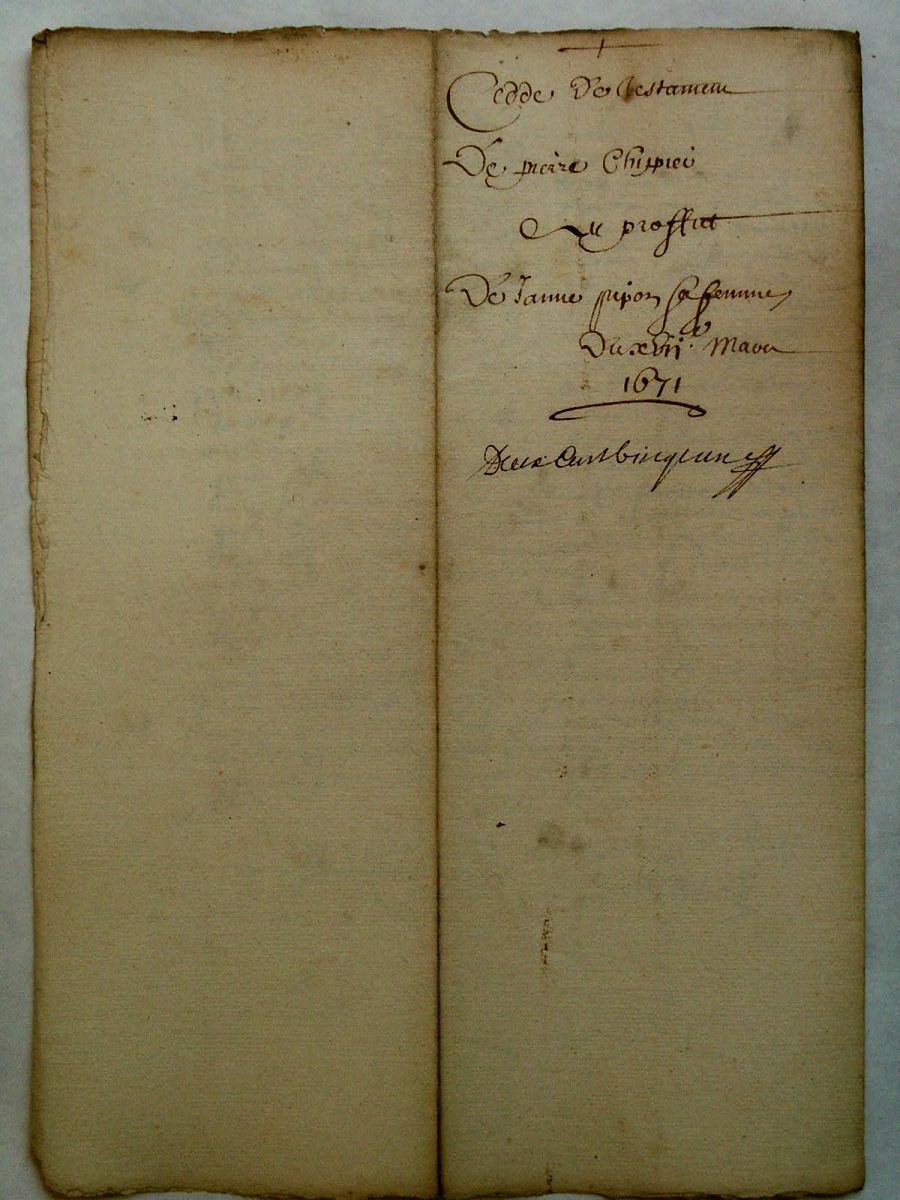 Cedde De testament
De pierre Chippier
Au proffict
De Janne pipon sa femme
Du xviie Maou
1671
Deux Cent Cinquante